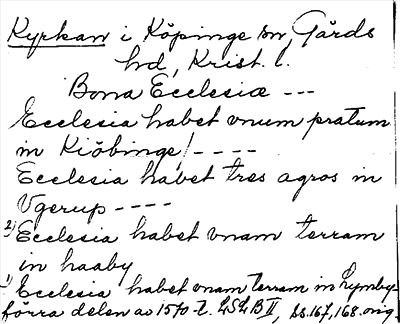 Kyrkan i Köpinge sn, Gärds
hd, Krist. l.
Bona Ecclesiæ ---
Ecclesia habet vnum pratum
in Kiöbinge/----
Ecclesia habet tres agros in
Vgerup ----
2) Ecclesia habet vnam terram
in haaby
1) Ecclesia habet vnam terram in Lymby
förra delen av 1570-t. LSLB II, ss. 167, 168. orig.